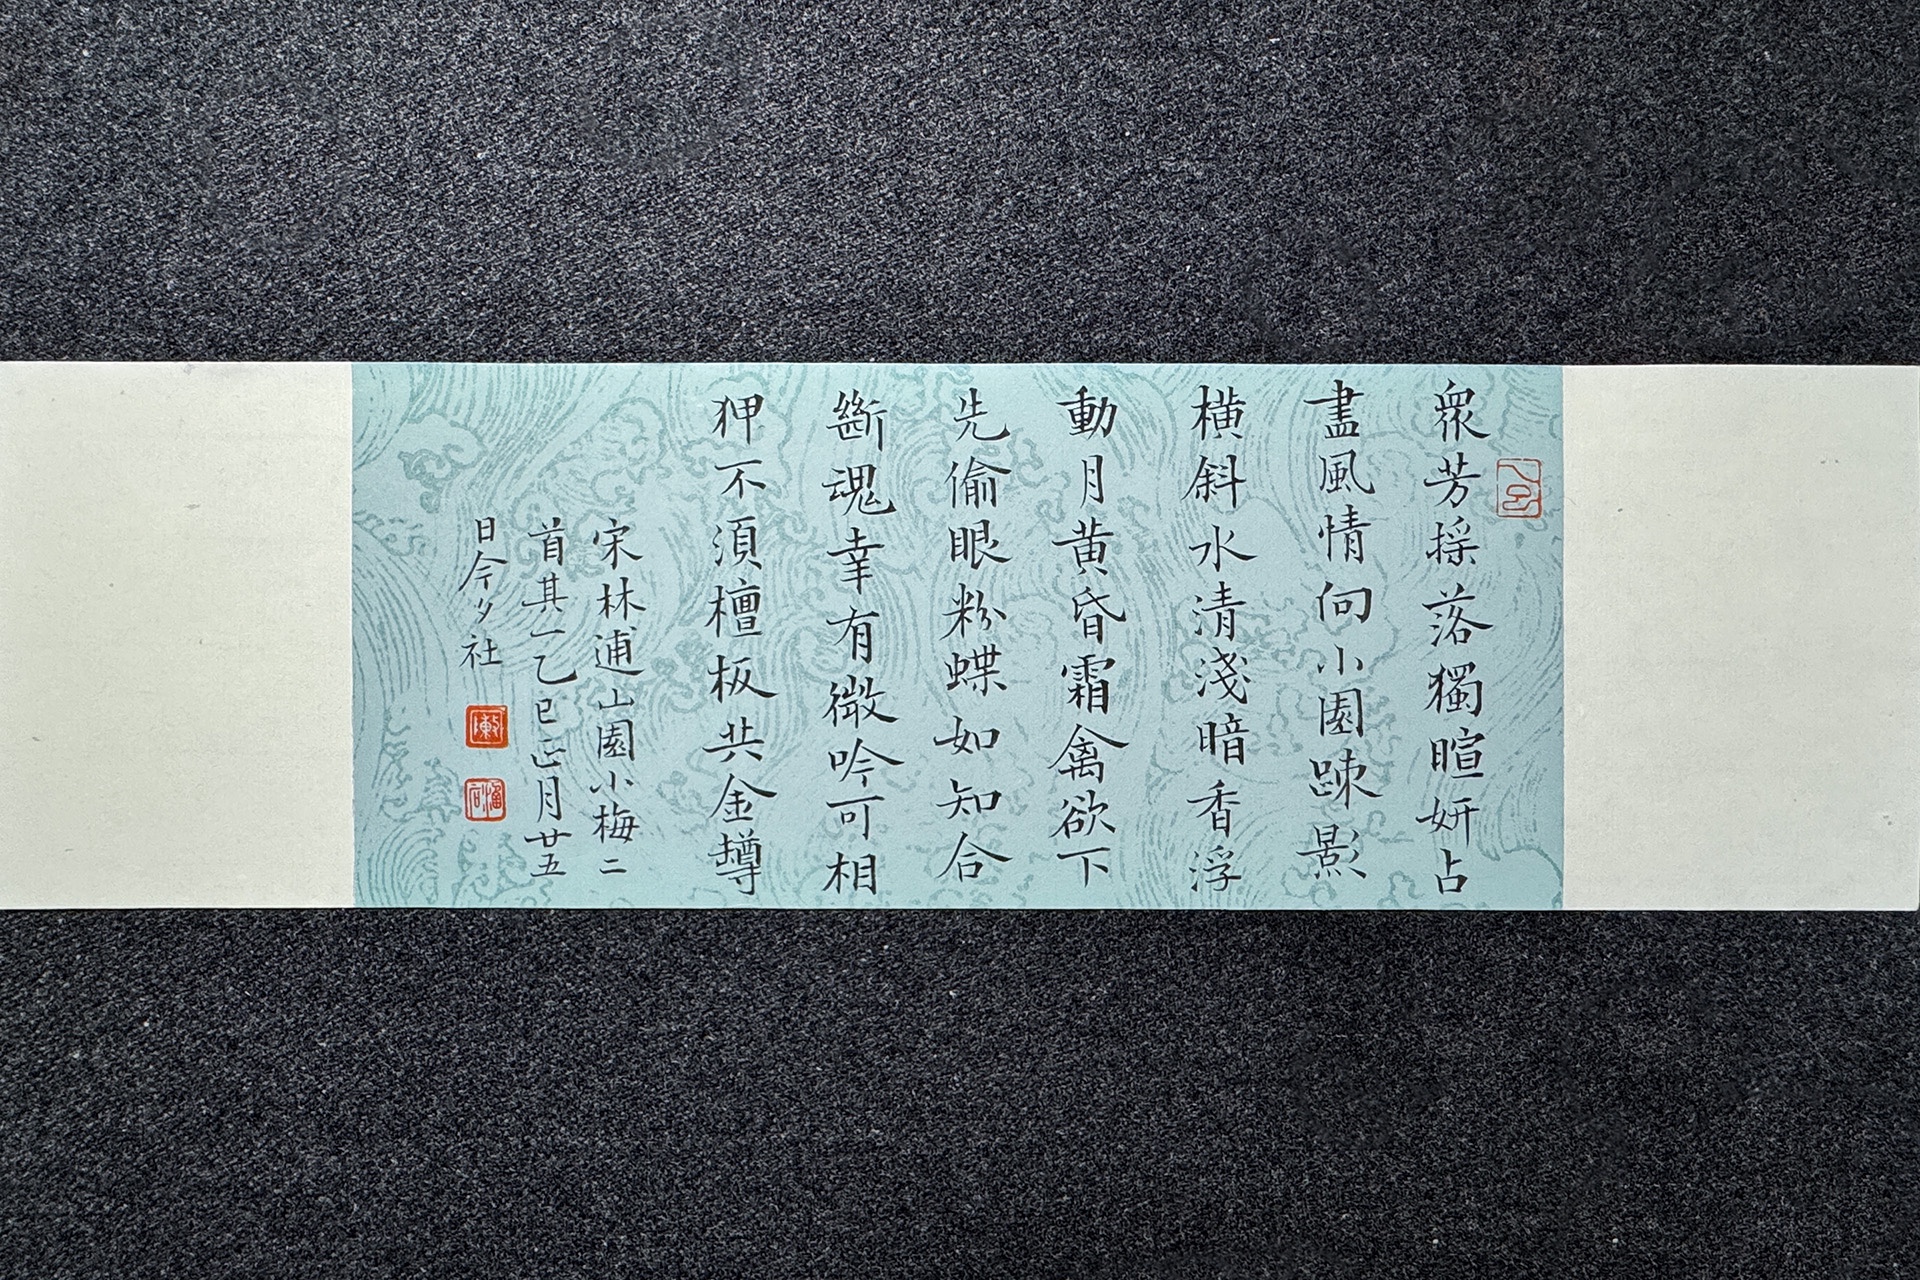 衆芳採落獨暄妍占
盡風情向小園踈影
橫斜水清淺暗香浮
動月黃昏霜禽欲下
先偷眼粉蝶如知合
斷魂幸有微吟可相
狎不須檀板共金罇
宋林逋山園小梅二
首其一乙巳正月廿五
日今夕社